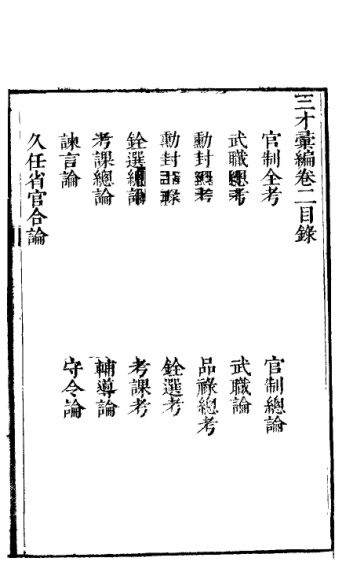 三才彙編卷二目錄
官制全考
官制總論
武職總考
武職論
勳封總考
品祿總考
勳封品祿
銓選考
銓選總論
考課考
考課總論
輔導論
諫言論
守令論
久任省官合論